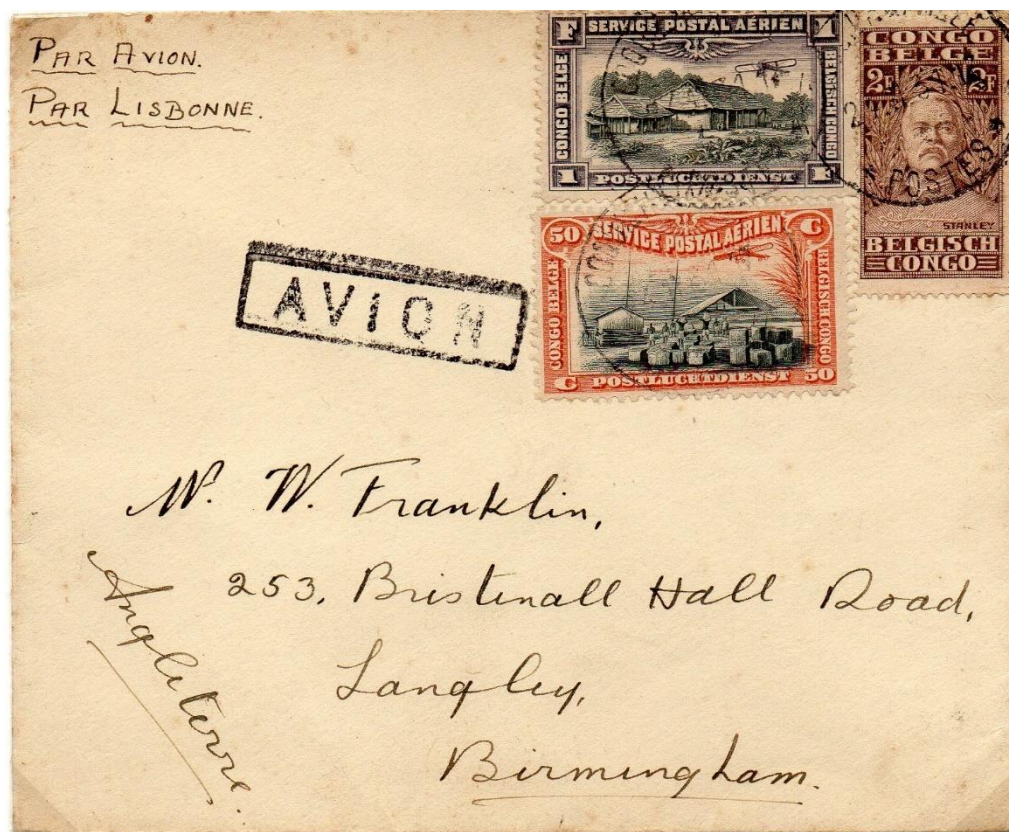 PAR AVION.
PAR LISBONNE.
F SERVICE POSTAL AÉRIEN 1
CONGO BELGE
BELGISCH CONGO
1 POSTLUCHTDIENST F
CONGO
BELGE
2F 2F
POSTES
STANLEY
BELGISCH
CONGO
50 SERVICE POSTAL AÉRIEN C
CONGO BELGE
BELGISCH CONGO
C POSTLUCHTDIENST 50
AVION
W. Franklin,
253, Bristnall Hall Road,
Langley,
Birmingham.
Angleterre.